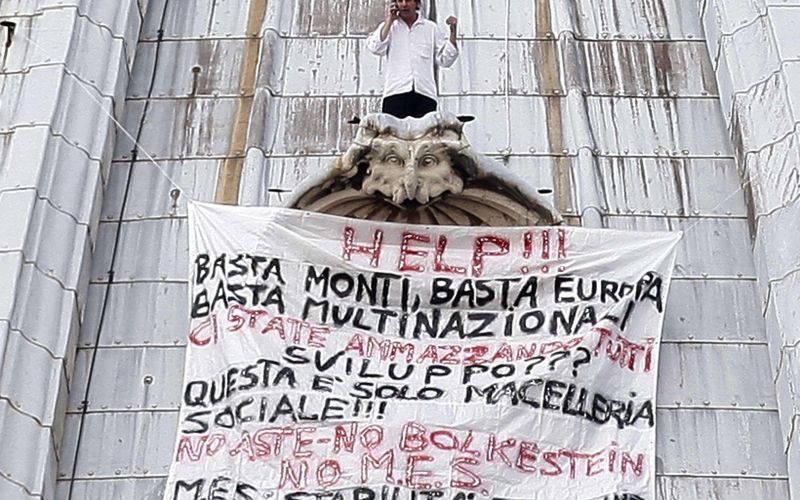 HELP!!!
BASTA MONTI, BASTA EUROPA
BASTA MULTINAZIONALI
CI STATE AMMAZZANDO TUTTI
SVILUPPO???
QUESTA E' SOLO MACELLERIA
SOCIALE!!!
NO ASTE-NO BOLKESTEIN
NO M.E.S.
MES: STABILITÀ